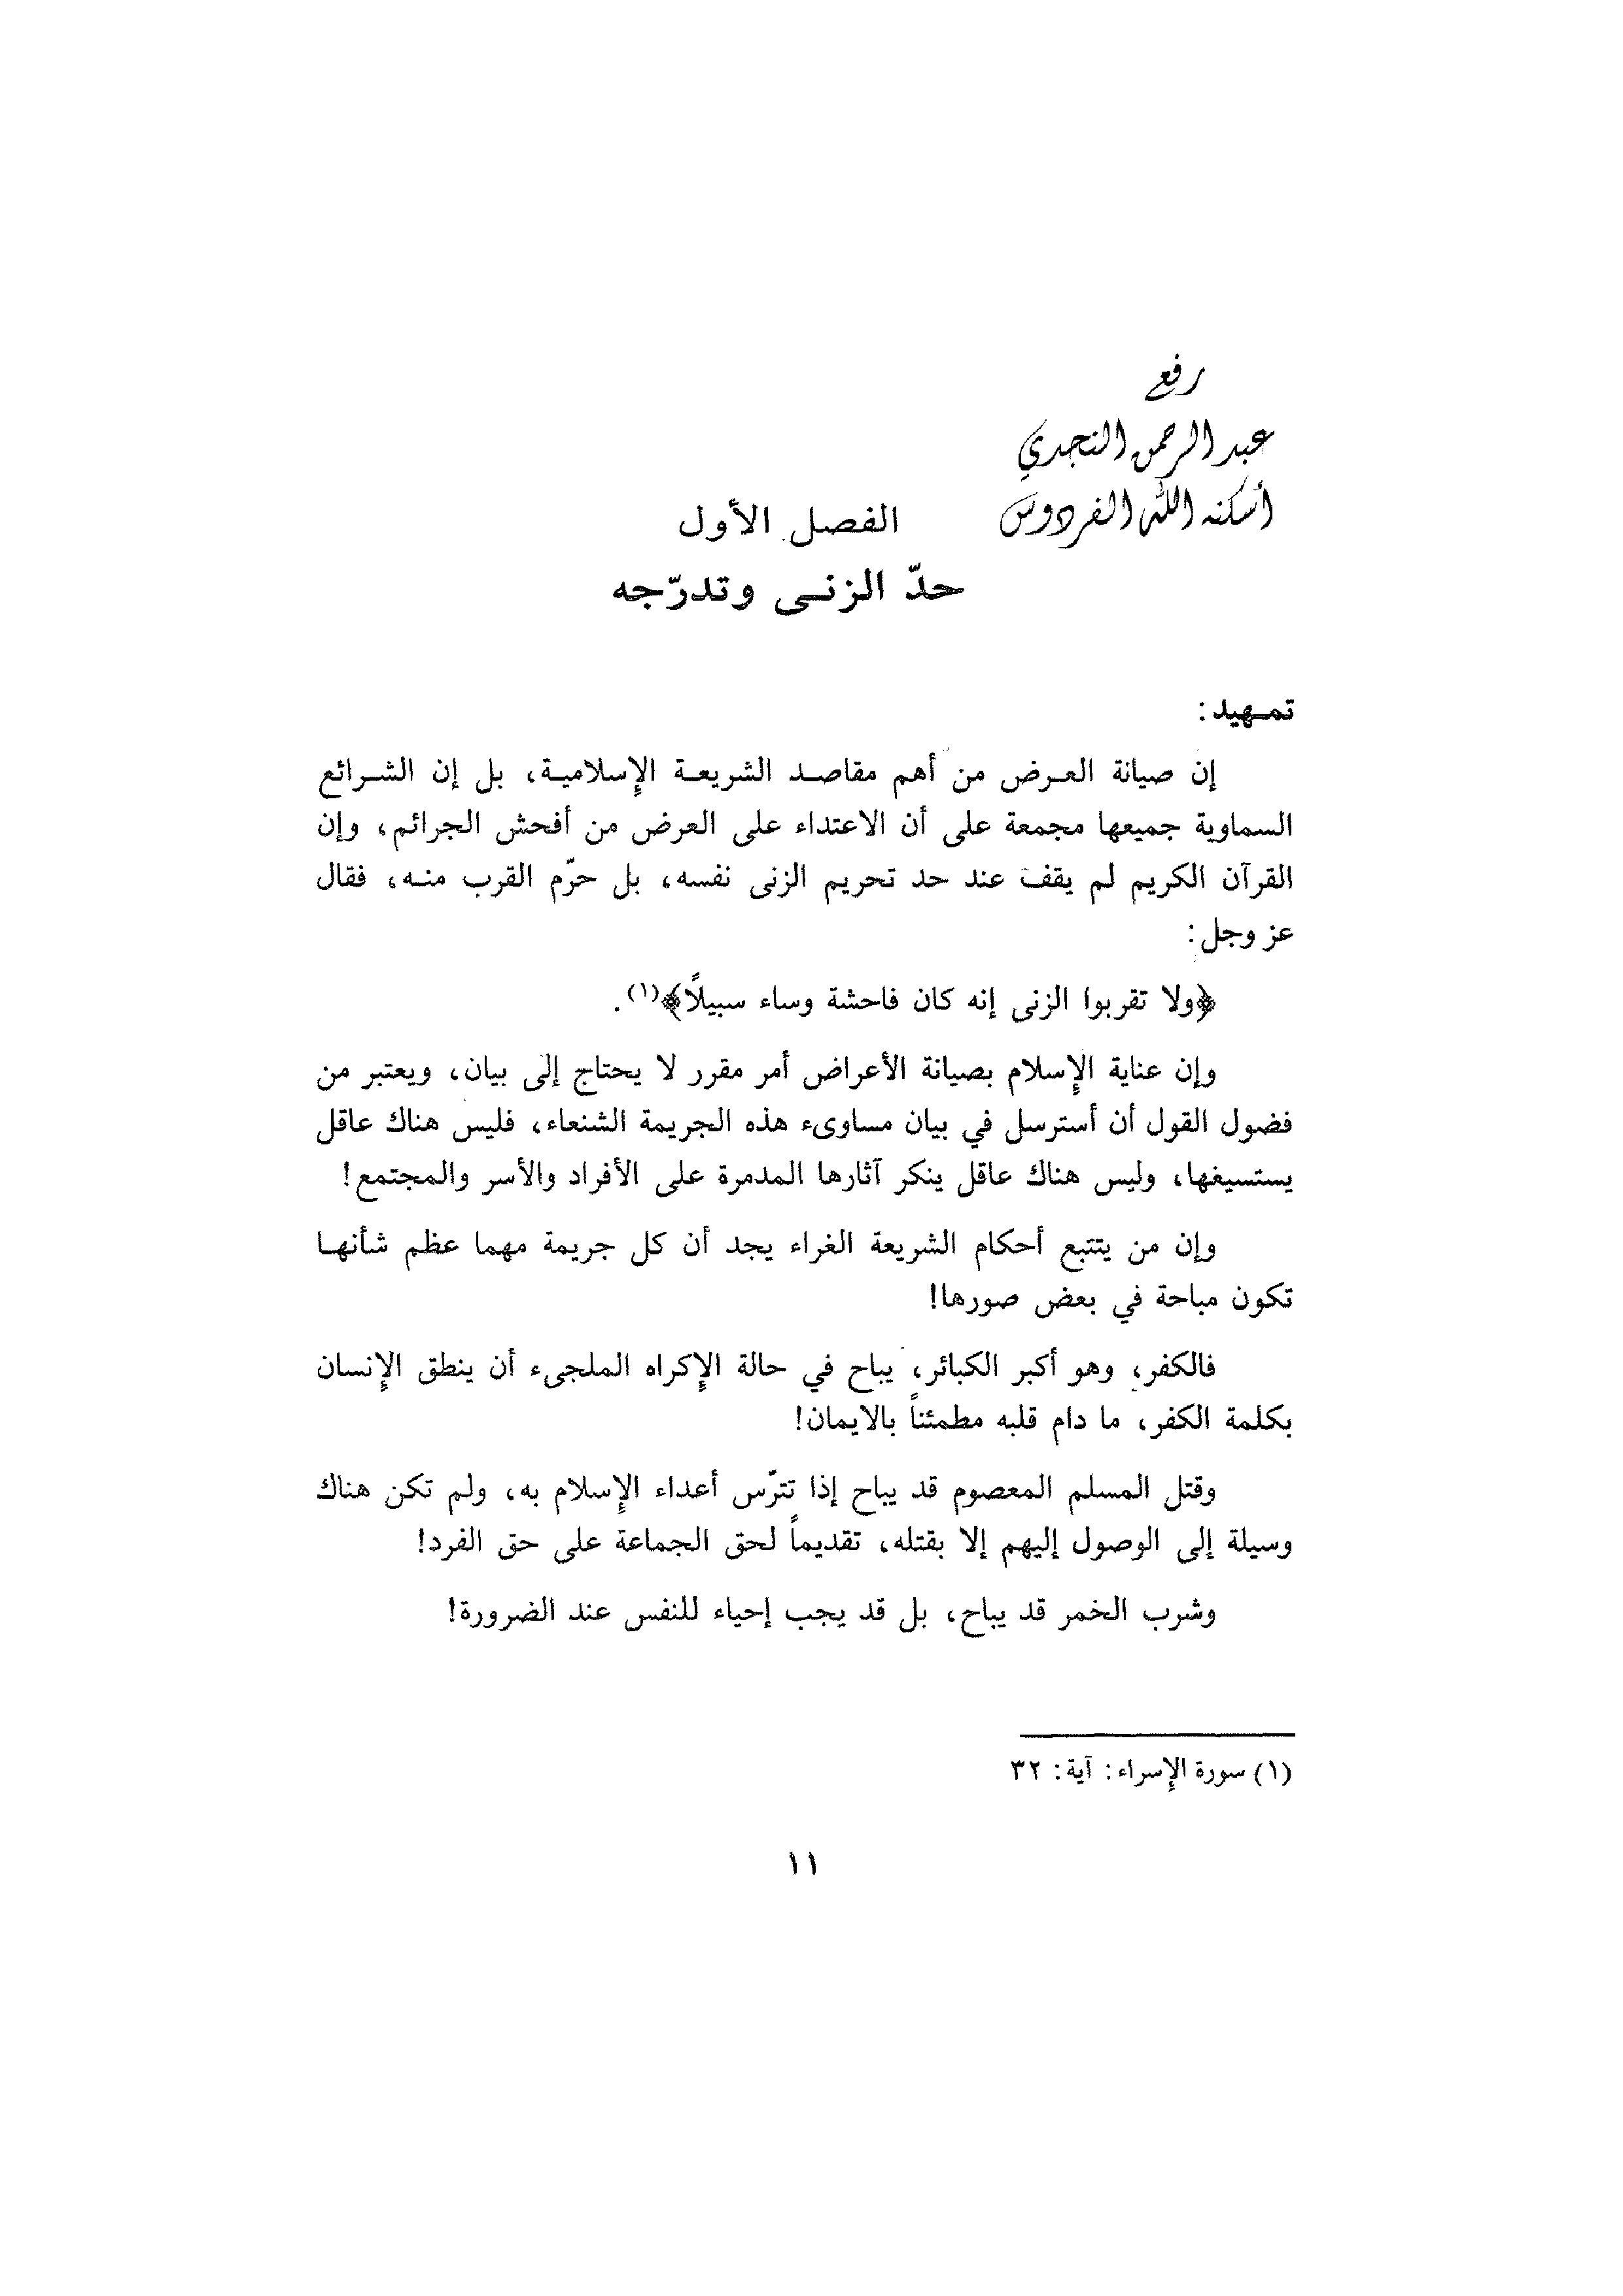 رفع
عبد الرحمن النجدي
أسكنه الله الفردوس
الفصل الأول
حدّ الزنى وتدرّجه
تمهيد:
إن صيانة العرض من أهم مقاصد الشريعة الإسلامية، بل إن الشرائع
السماوية جميعها مجمعة على أن الاعتداء على العرض من أفحش الجرائم، وإن
القرآن الكريم لم يقف عند حد تحريم الزنى نفسه، بل حرّم القرب منه، فقال
عز وجل:
﴿ولا تقربوا الزنى إنه كان فاحشة وساء سبيلاً﴾(١).
وإن عناية الإسلام بصيانة الأعراض أمر مقرر لا يحتاج إلى بيان، ويعتبر من
فضول القول أن أسترسل في بيان مساوىء هذه الجريمة الشنعاء، فليس هناك عاقل
يستسيغها، وليس هناك عاقل ينكر آثارها المدمرة على الأفراد والأسر والمجتمع!
وإن من يتتبع أحكام الشريعة الغراء يجد أن كل جريمة مهما عظم شأنها
تكون مباحة في بعض صورها!
فالكفر، وهو أكبر الكبائر، يباح في حالة الإكراه الملجىء أن ينطق الإنسان
بكلمة الكفر، ما دام قلبه مطمئناً بالايمان!
وقتل المسلم المعصوم قد يباح إذا تترّس أعداء الإسلام به، ولم تكن هناك
وسيلة إلى الوصول إليهم إلا بقتله، تقديماً لحق الجماعة على حق الفرد!
وشرب الخمر قد يباح، بل قد يجب إحياء للنفس عند الضرورة!
(١) سورة الإسراء: آية: ٣٢
١١